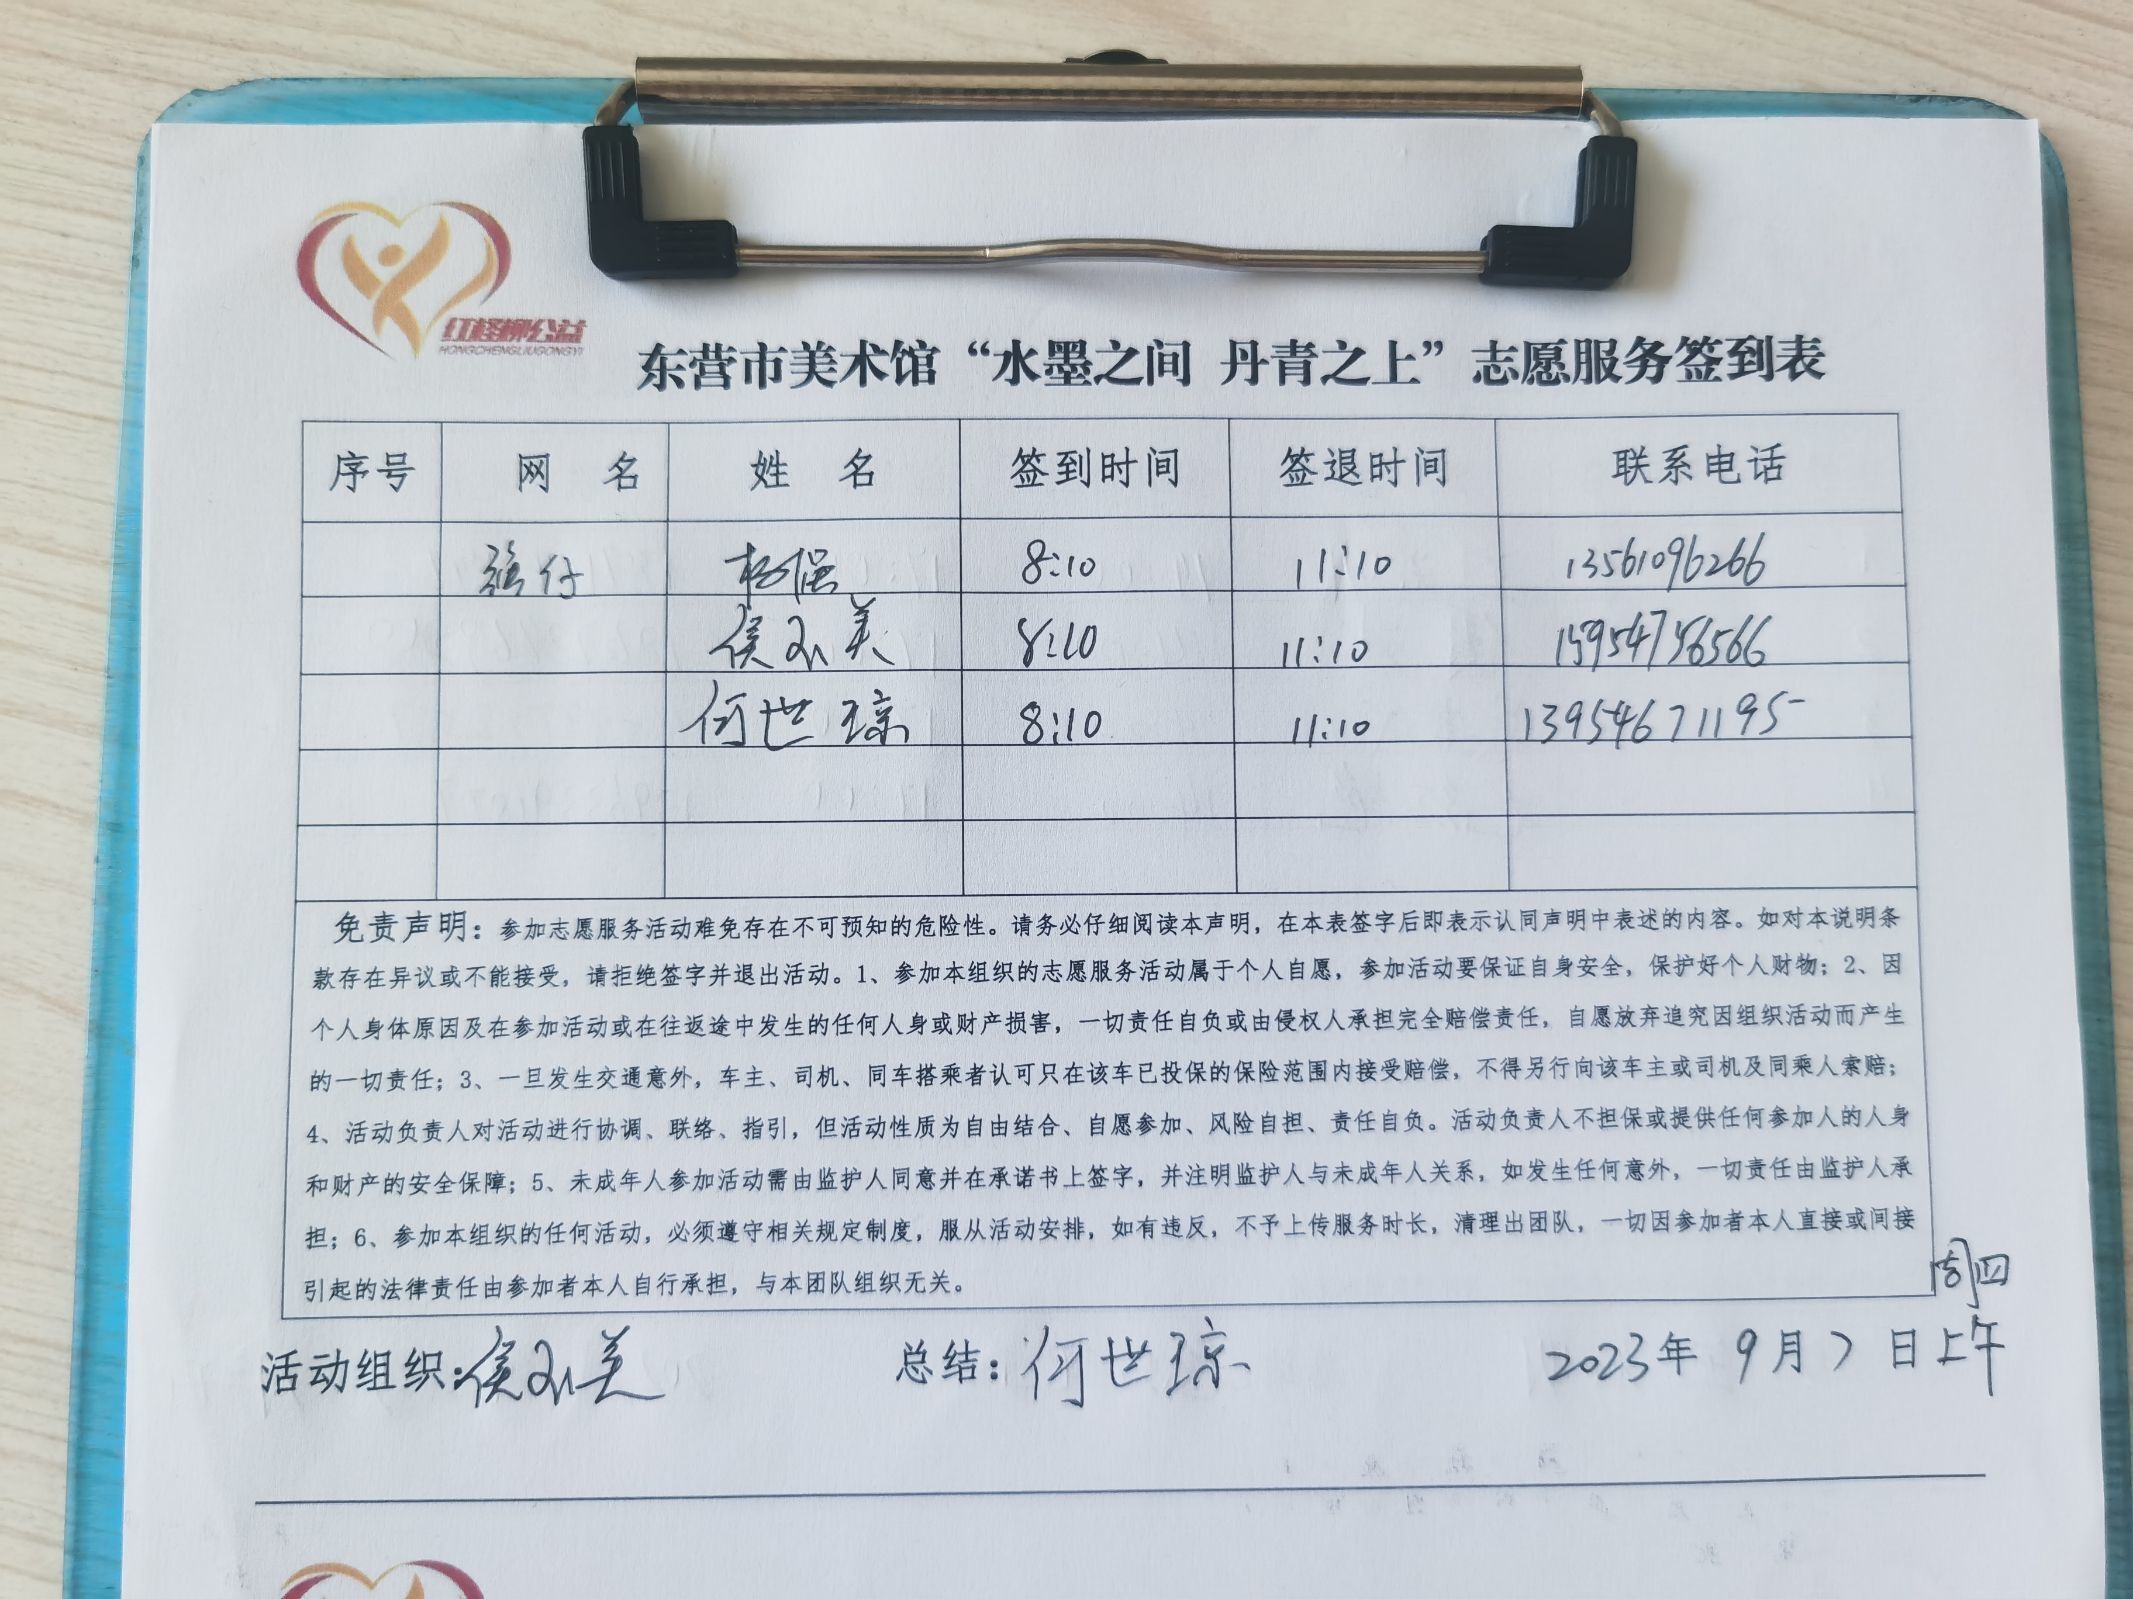 红柽柳公益
HONGCHENGLIUGONGYI
东营市美术馆“水墨之间 丹青之上”志愿服务签到表
序号 网 名 姓 名 签到时间 签退时间 联系电话
强仔 杨强 8:10 11:10 13561096266
侯小美 8:10 11:10 15954756566
何世琼 8:10 11:10 13954671195
免责声明：参加志愿服务活动难免存在不可预知的危险性。请务必仔细阅读本声明，在本表签字后即表示认同声明中表述的内容。如对本说明条
款存在异议或不能接受，请拒绝签字并退出活动。1、参加本组织的志愿服务活动属于个人自愿，参加活动要保证自身安全，保护好个人财物；2、因
个人身体原因及在参加活动或在往返途中发生的任何人身或财产损害，一切责任自负或由侵权人承担完全赔偿责任，自愿放弃追究因组织活动而产生
的一切责任；3、一旦发生交通意外，车主、司机、同车搭乘者认可只在该车已投保的保险范围内接受赔偿，不得另行向该车主或司机及同乘人索赔；
4、活动负责人对活动进行协调、联络、指引，但活动性质为自由结合、自愿参加、风险自担、责任自负。活动负责人不担保或提供任何参加人的人身
和财产的安全保障；5、未成年人参加活动需由监护人同意并在承诺书上签字，并注明监护人与未成年人关系，如发生任何意外，一切责任由监护人承
担；6、参加本组织的任何活动，必须遵守相关规定制度，服从活动安排，如有违反，不予上传服务时长，清理出团队，一切因参加者本人直接或间接
引起的法律责任由参加者本人自行承担，与本团队组织无关。
周四
活动组织：侯小美 总结：何世琼 2023年 9月 7 日上午